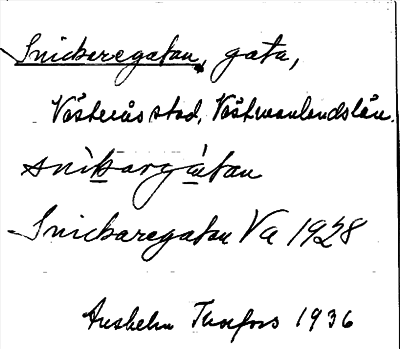 Snickaregatan, gata,
Västerås stad, Västmanlands län.
snìkargàtan
Snickaregatan Va 1928
1936